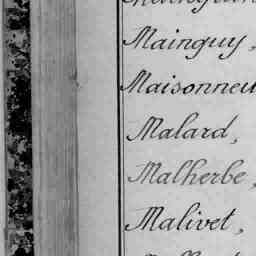 Mainguy,
Maisonneu
Malard,
Malherbe,
Malivet,